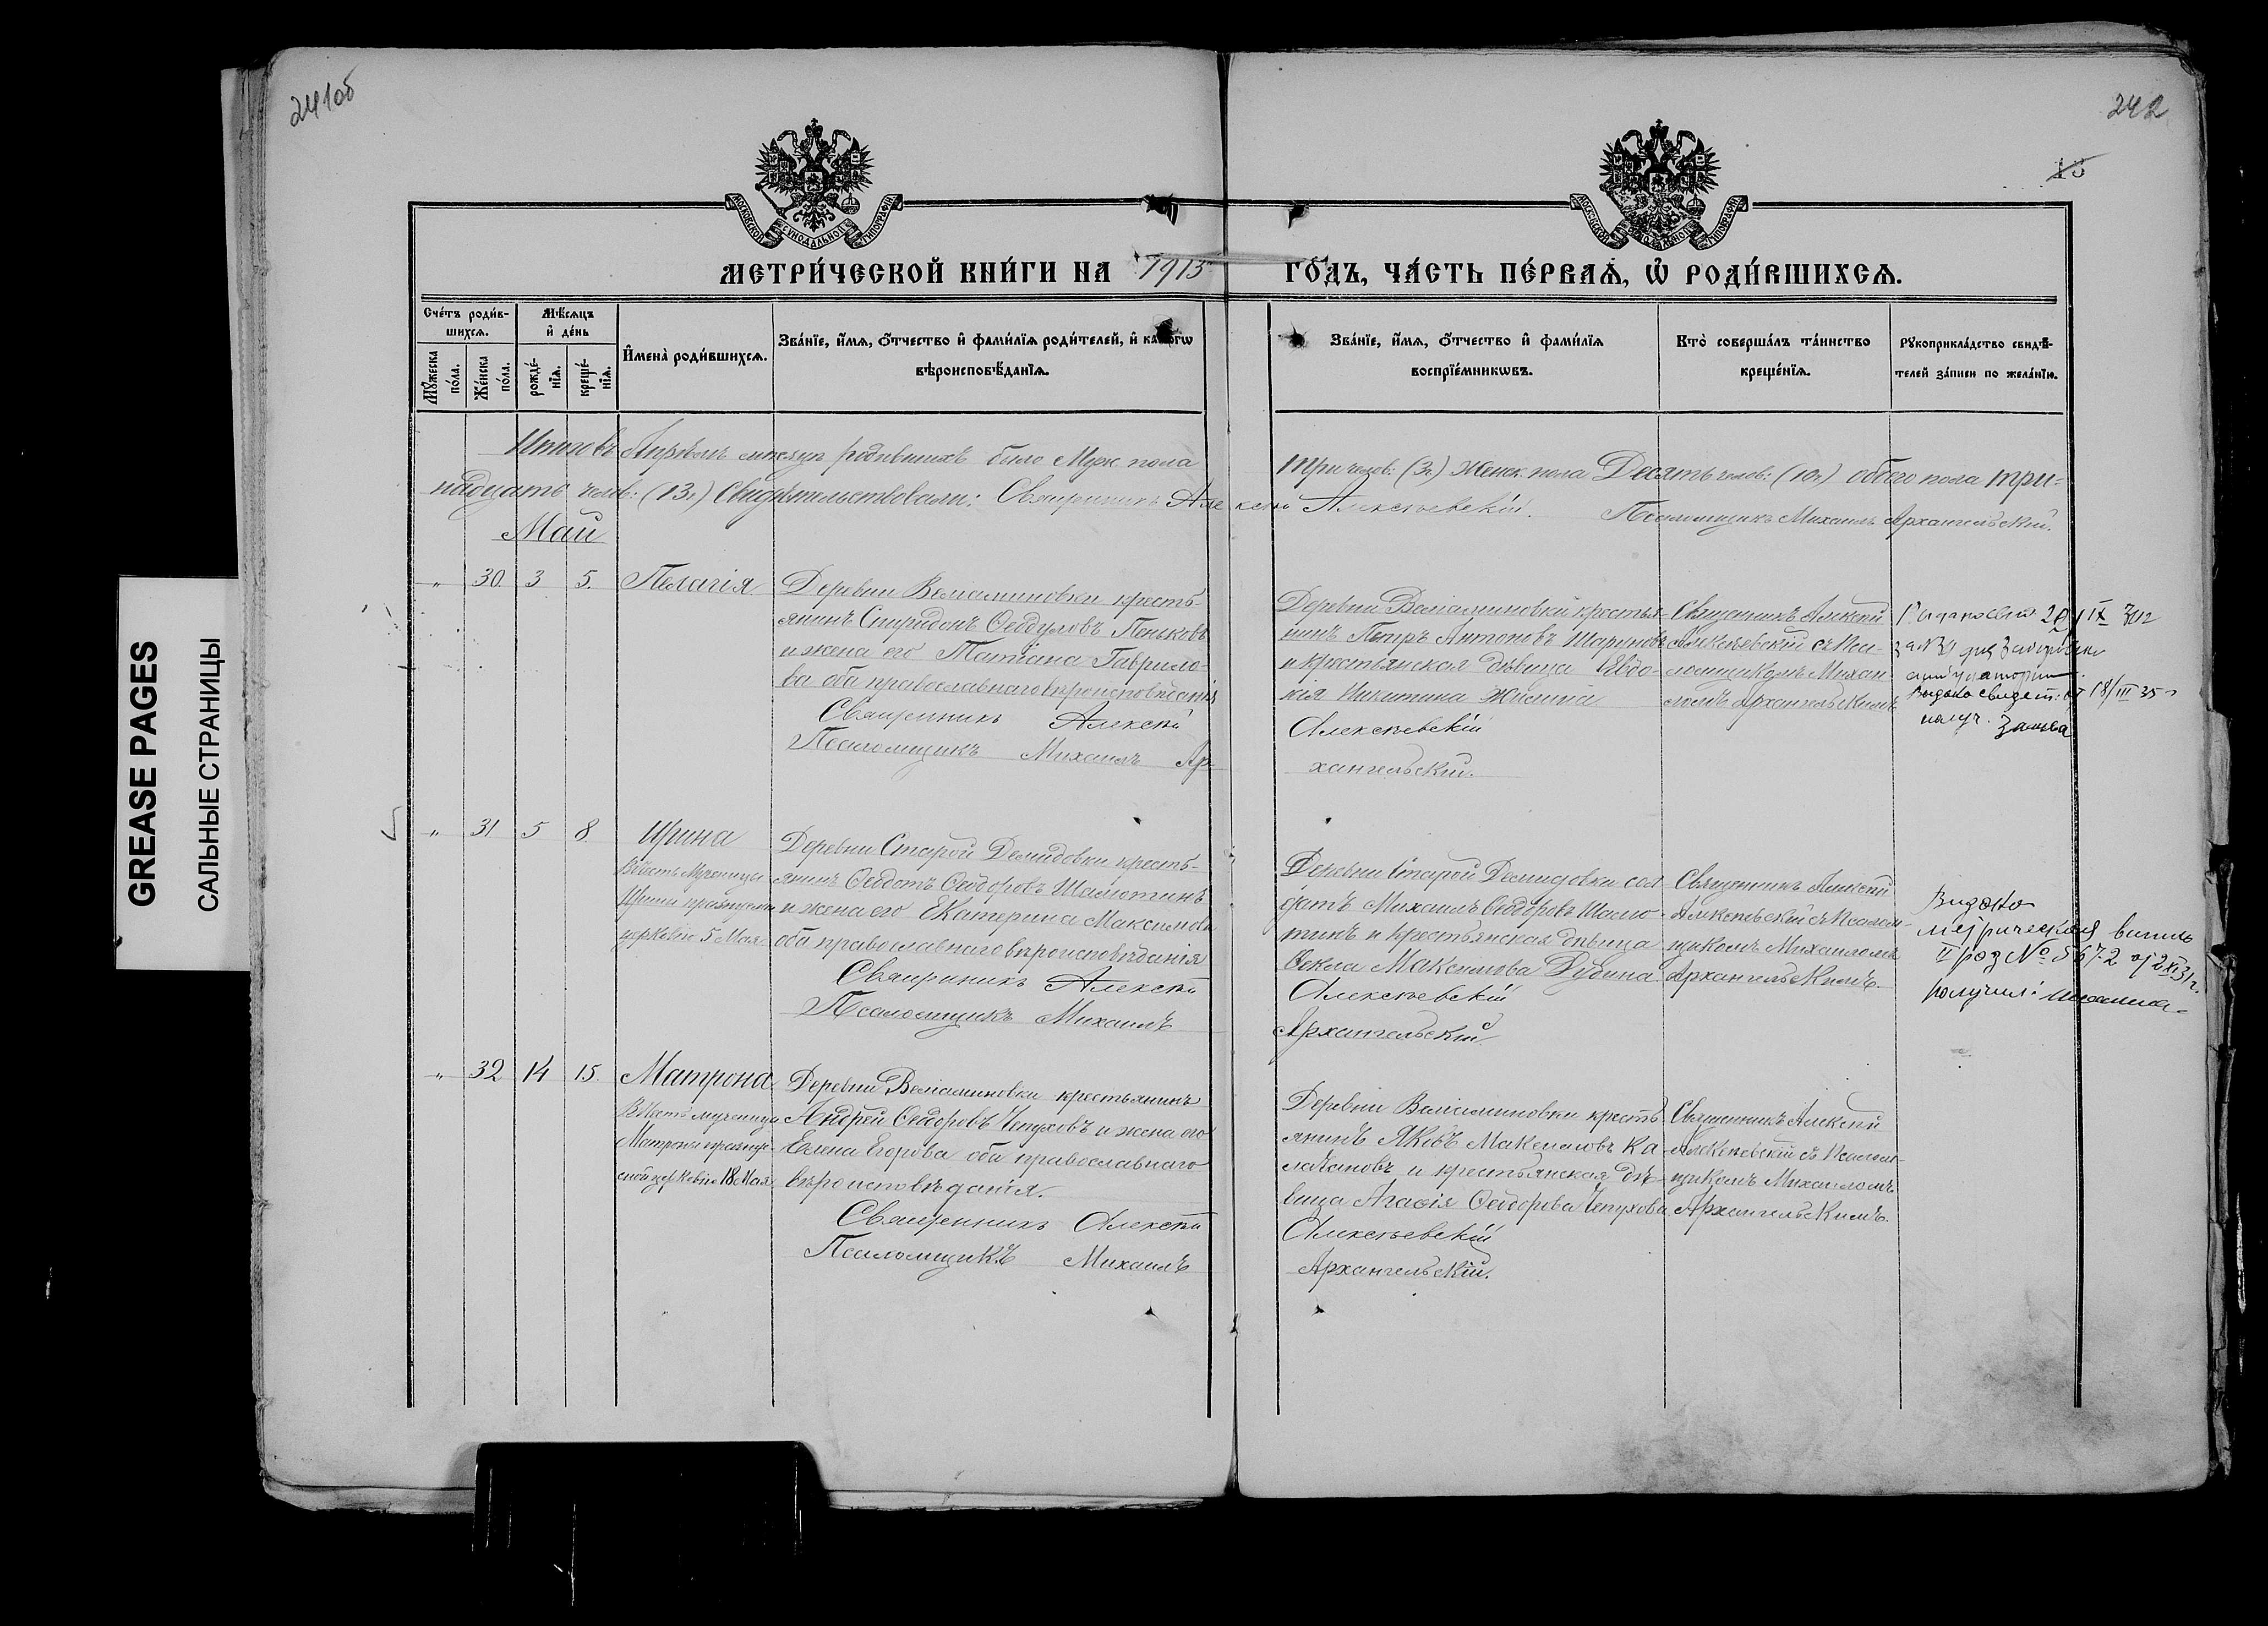 241об
242
15
МОСКОВСКОЙ СУНОДАЛЬНОЙ ТИПОГРАФІИ
МЕТРИ́ЧЕСКОЙ КНИ́ГИ НА 1915 ГО́ДЪ, ЧА́СТЬ ПЕ́РВАѦ, Ѡ РОДИ́ВШИХСѦ.
Сче́тъ роди́в-
шихсѧ.
Мꙋ́жеска
по́ла.
Же́нска
по́ла.
Мѣ́сѧцъ
и де́нь
рожде́-
нїѧ.
креще́-
нїѧ.
Имена̀ роди́вшихсѧ.
Зва́нїе, и́мѧ, о́тчество и фами́лїѧ роди́телей, и какогѡ
вѣроисповѣ́данїѧ.
Зва́нїе, и́мѧ, о́тчество и фами́лїѧ
воспрїе́мникѡвъ.
Кто̀ соверша́лъ та́инство
креще́нїѧ.
Рꙋкоприкла́дство свидѣ́-
телей за́писи по жела́нїю.
Итого въ Апрѣлѣ мѣсяцѣ родившихъ было Муж. пола три челов: (3.) Женск. пола Десять челов: (10.) обоего пола три-
надцать челов: (13.) Свидѣтельствовали: Священникъ Алексѣй Алексѣевскій. Псаломщикъ Михаилъ Архангельскій.
Май
" 30. 3 5. Пелагія
Деревни Веліаминовки кресть-
янинъ Спиридонъ Ѳеодуловъ Пеньковъ
и жена его Татіана Гаврило-
ва оба православнаго вѣроисповѣданія
Священникъ Алексѣй
Псаломщикъ Михаилъ Ар-
Деревни Веліаминовки крестья-
нинъ Петръ Антоновъ
и крестьянская дѣвица Евдо-
кія Никитина
Алексѣевскій
хангельскій.
Священникъ Алексѣй
Алексѣевскій съ Пса-
ломщикомъ Михаи-
ломъ Архангельскимъ
Выдано свидет. от 18/III 35 г
получ.
" 31 5 8. Ирина
Въ честь Мученицы
Ирины празднуемой
церковію 5 Мая.
Деревни Старой Демидовки кресть-
янинъ Ѳедотъ Ѳеодоровъ Шамотинъ
и жена его Екатерина Максимова
оба православнаго вѣроисповѣданія
Священникъ Алексѣй
Псаломщикъ Михаилъ
Деревни Старой Демидовки сол-
датъ Михаилъ Ѳеодоровъ Шамо-
тинъ и крестьянская дѣвица
Ѳекла Максимова Дубина
Алексѣевскій
Архангельскій
Священникъ Алексѣй
Алексѣевскій съ Псалом-
щикомъ Михаиломъ
Архангельскимъ.
Видано
метрическая випись
II род № 5672 от 2 XI 31 г.
получил:
" 32 14 15. Матрона.
Въ честь мученицы
Матроны празднуе-
мой церковію 18 Мая
Деревни Веліаминовки крестьянинъ
Андрей Ѳеодоровъ Чепуховъ и жена его
Елена Егорова оба православнаго
вѣроисповѣданія.
Священникъ Алексѣй
Псаломщикъ Михаилъ
Деревни Веліаминовки кресть-
янинъ Яковъ Максимовъ Ка-
лачановъ и крестьянская дѣ-
вица Агафія Ѳеодорова Чепухова
Алексѣевскій
Архангельскій.
Священникъ Алексѣй
Алексѣевскій съ Псалом-
щикомъ Михаиломъ
Архангельскимъ.
GREASE PAGES
САЛЬНЫЕ СТРАНИЦЫ